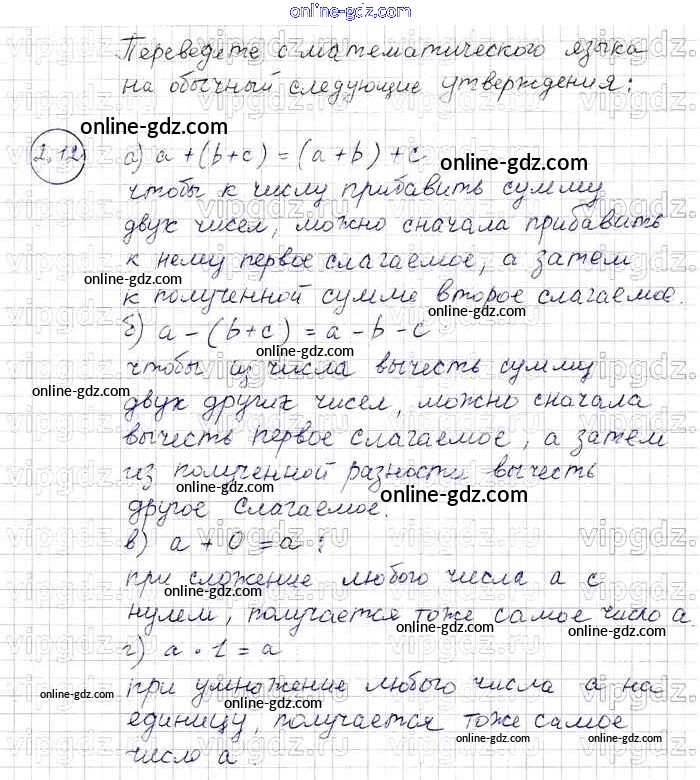 online-gdz.com
Переведете с математического языка
на обычный следующие утверждения:
online-gdz.com
2.12 а) a + (b + c) = (a + b) + c
online-gdz.com
чтобы к числу прибавить сумму
двух чисел, можно сначала прибавить
online-gdz.com
к нему первое слагаемое, а затем
online-gdz.com
к полученной сумме второе слагаемое.
online-gdz.com
б) a - (b + c) = a - b - c
online-gdz.com
чтобы из числа вычесть сумму
online-gdz.com
двух других чисел, можно сначала
вычесть первое слагаемое, а затем
из полученной разности вычесть
online-gdz.com
online-gdz.com
другое слагаемое.
в) a + 0 = a :
при сложение любого числа a с
нулем, получается тоже самое число a
online-gdz.com
г) a · 1 = a
при умножение любого числа a на
online-gdz.com
online-gdz.com
единицу, получается тоже самое
online-gdz.com
число a